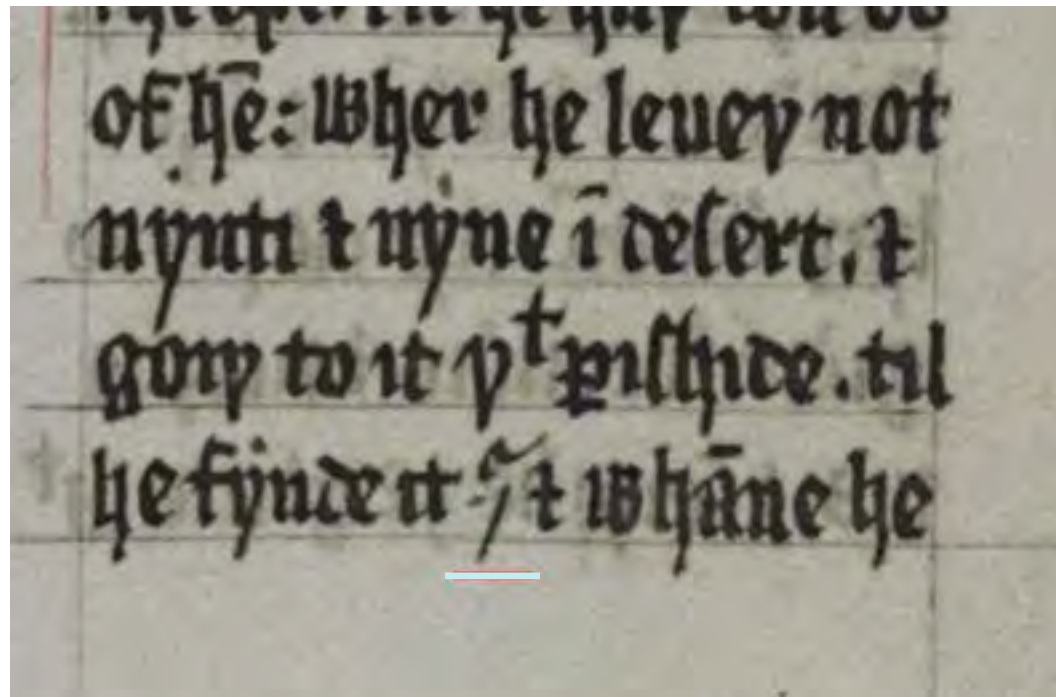 of hē: wher he leueþ not
nynti ⁊ nyne ī desert. ⁊
goiþ to it þᵗ ꝑischide. til
he fynde it ? ⁊ whāne he